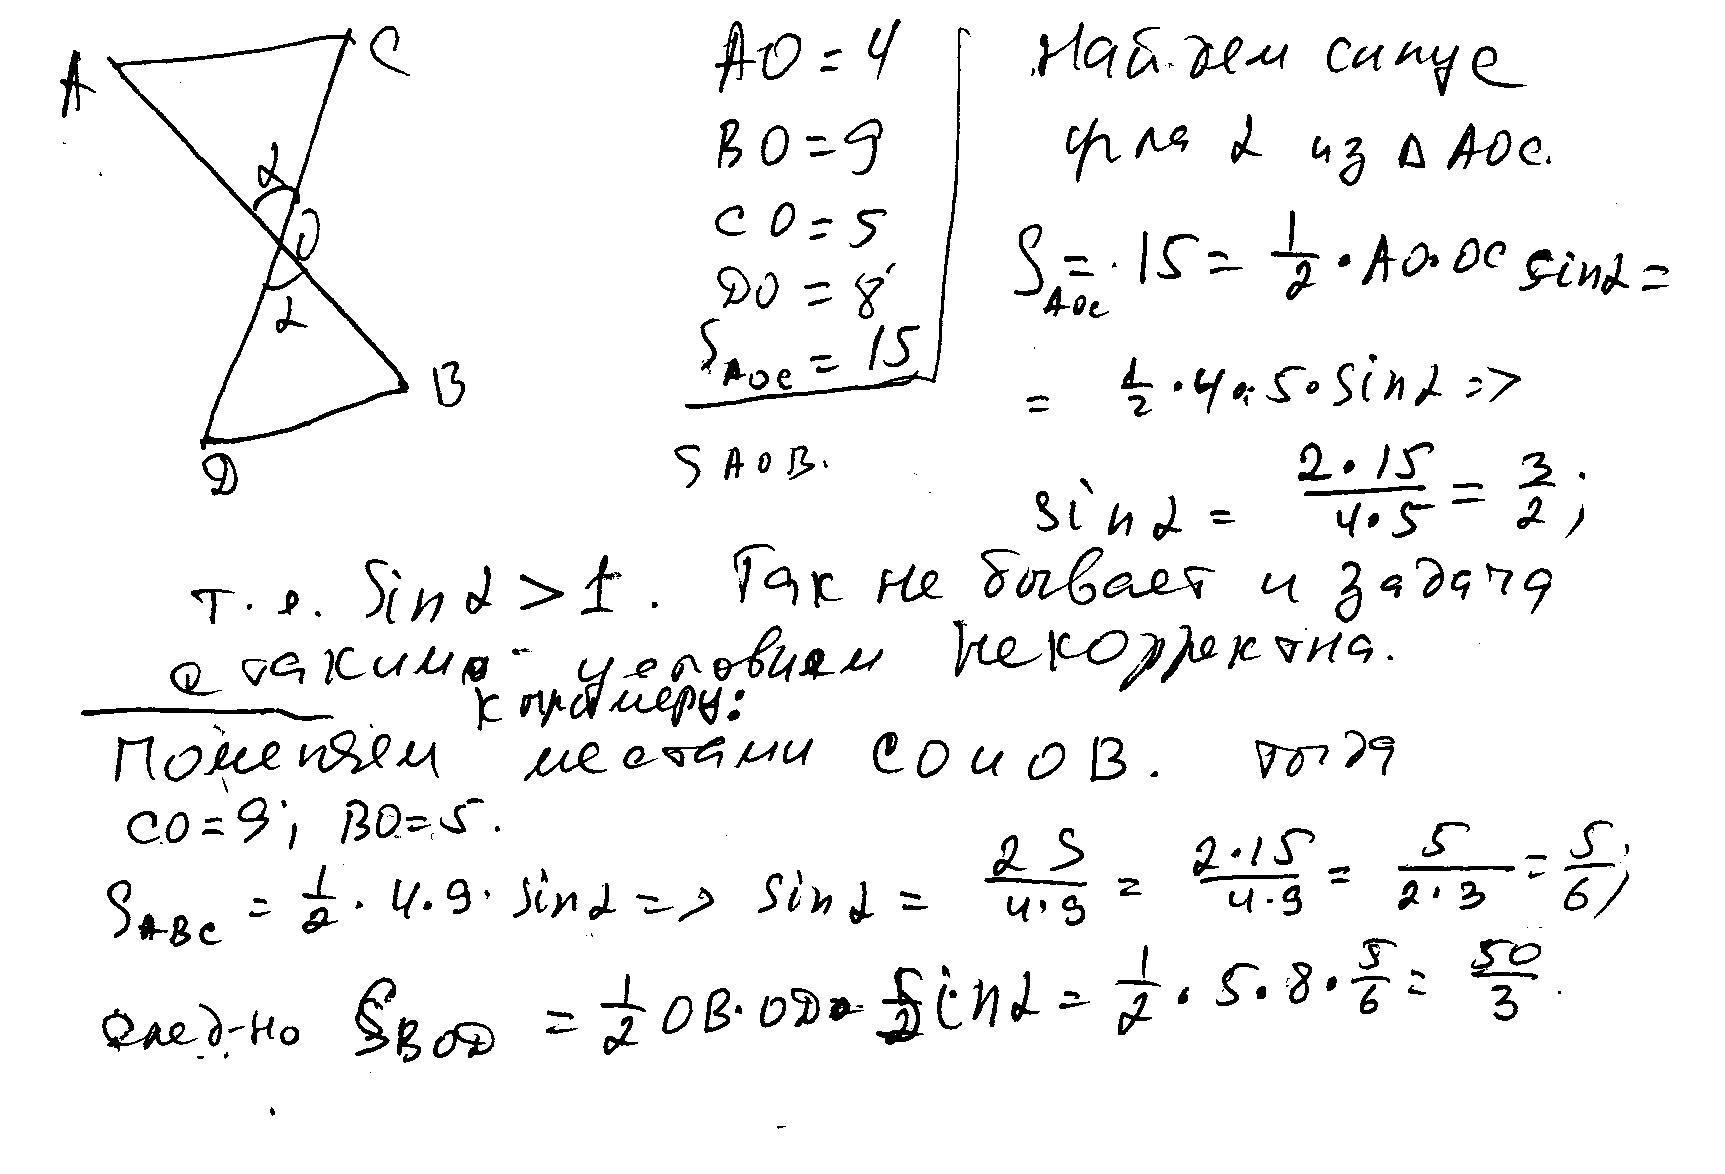 A
C
α
O
α
B
D
AO = 4
BO = 9
CO = 5
DO = 8
S AOC = 15
S AOB.
Найдем синус
угла α из Δ AOC.
S AOC = 15 = 1/2 · AO · OC sin α =
= 1/2 · 4 · 5 · sin α =>
sin α = 2 · 15 / 4 · 5 = 3/2 ;
т. е. sin α > 1. Так не бывает и задача
с таким условием некорректна.
к примеру:
Поменяем местами CO и OB. тогда
CO = 9 ; BO = 5.
S ABC = 1/2 · 4 · 9 · sin α => sin α = 2S / 4 · 9 = 2 · 15 / 4 · 9 = 5 / 2 · 3 = 5/6 ;
след-но S BOD = 1/2 OB · OD · sin α = 1/2 · 5 · 8 · 5/6 = 50/3 .